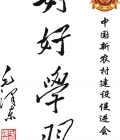 中国新农村建设促进会
好好學習
毛泽东